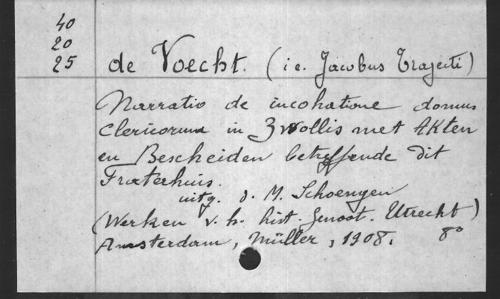 40
20
25
de Voecht. (i.e. Jacobus Trajecti)
Narratio de incohatione domus
clericorum in Zwollis met Akten
en Bescheiden betreffende dit
Fraterhuis.
uitg. d. M. Schoengen
(Werken v. h. hist. Genoot. Utrecht)
Amsterdam, Müller, 1908. 8°